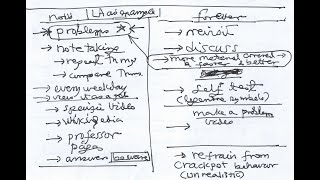 now
LA as example
problems
note taking
repeat in my
compare
every weekday
view it as a
specific video
wikipedia
professor
pages
answer beware
forever
revisit
discuss
more material covered
faster & better
self test
symbols)
make a problem
video
refrain from
crackpot behavior
(unrealistic)